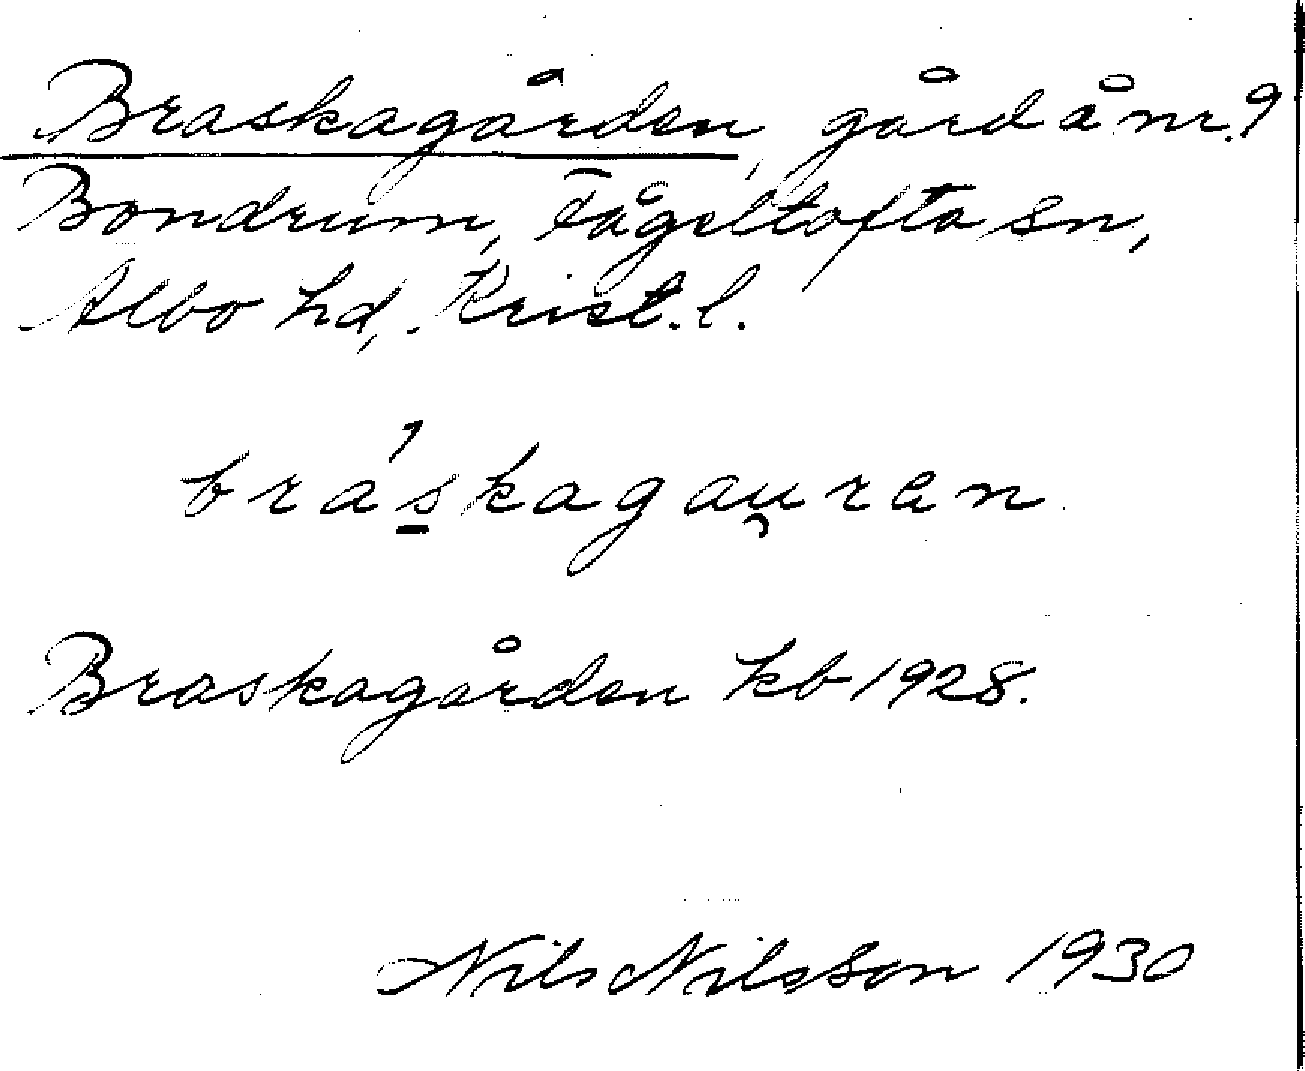 Braskagården, gård å nr. 9
Bondrum, Fågeltofta sn,
Albo hd, Krist. l.
bra's̲kagau̯ren
Braskagården kb 1928.
Nils Nilsson 1930